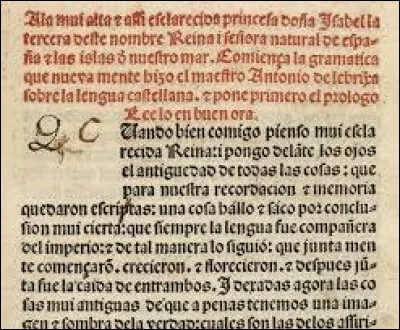 Ala mui alta ⁊ assi esclarecida princesa doña Isabel la
tercera deste nombre Reina i señora natural de espa-
ña ⁊ las islas de nuestro mar. Comiença la gramatica
que nueva mente hizo el maestro Antonio de lebrixa
sobre la lengua castellana. ⁊ pone primero el prologo
Lee lo en buen ora.
Q C
Uando bien comigo pienso mui escla
recida Reina: i pongo delãte los ojos
el antiguedad de todas las cosas: que
para nuestra recordacion ⁊ memoria
quedaron escriptas: una cosa hállo ⁊ sáco por conclu-
sion mui cierta: que siempre la lengua fue compañera
del imperio: ⁊ de tal manera lo siguió: que junta men
te començarõ. crecieron. ⁊ florecieron. ⁊ despues jũ-
ta fue la caida de entrambos. I deradas agora las co
sas mui antiguas de que a penas tenemos una ima-
gen ⁊ sombra de la verdad: cuales son las delos assiri-